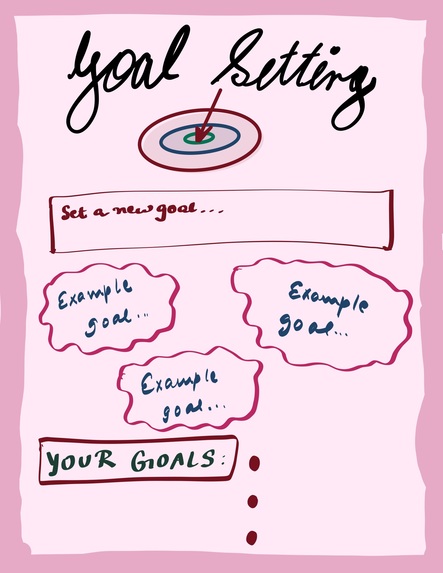 Goal Setting
Set a new goal...
Example
goal...
Example
goal...
Example
goal...
YOUR GOALS: